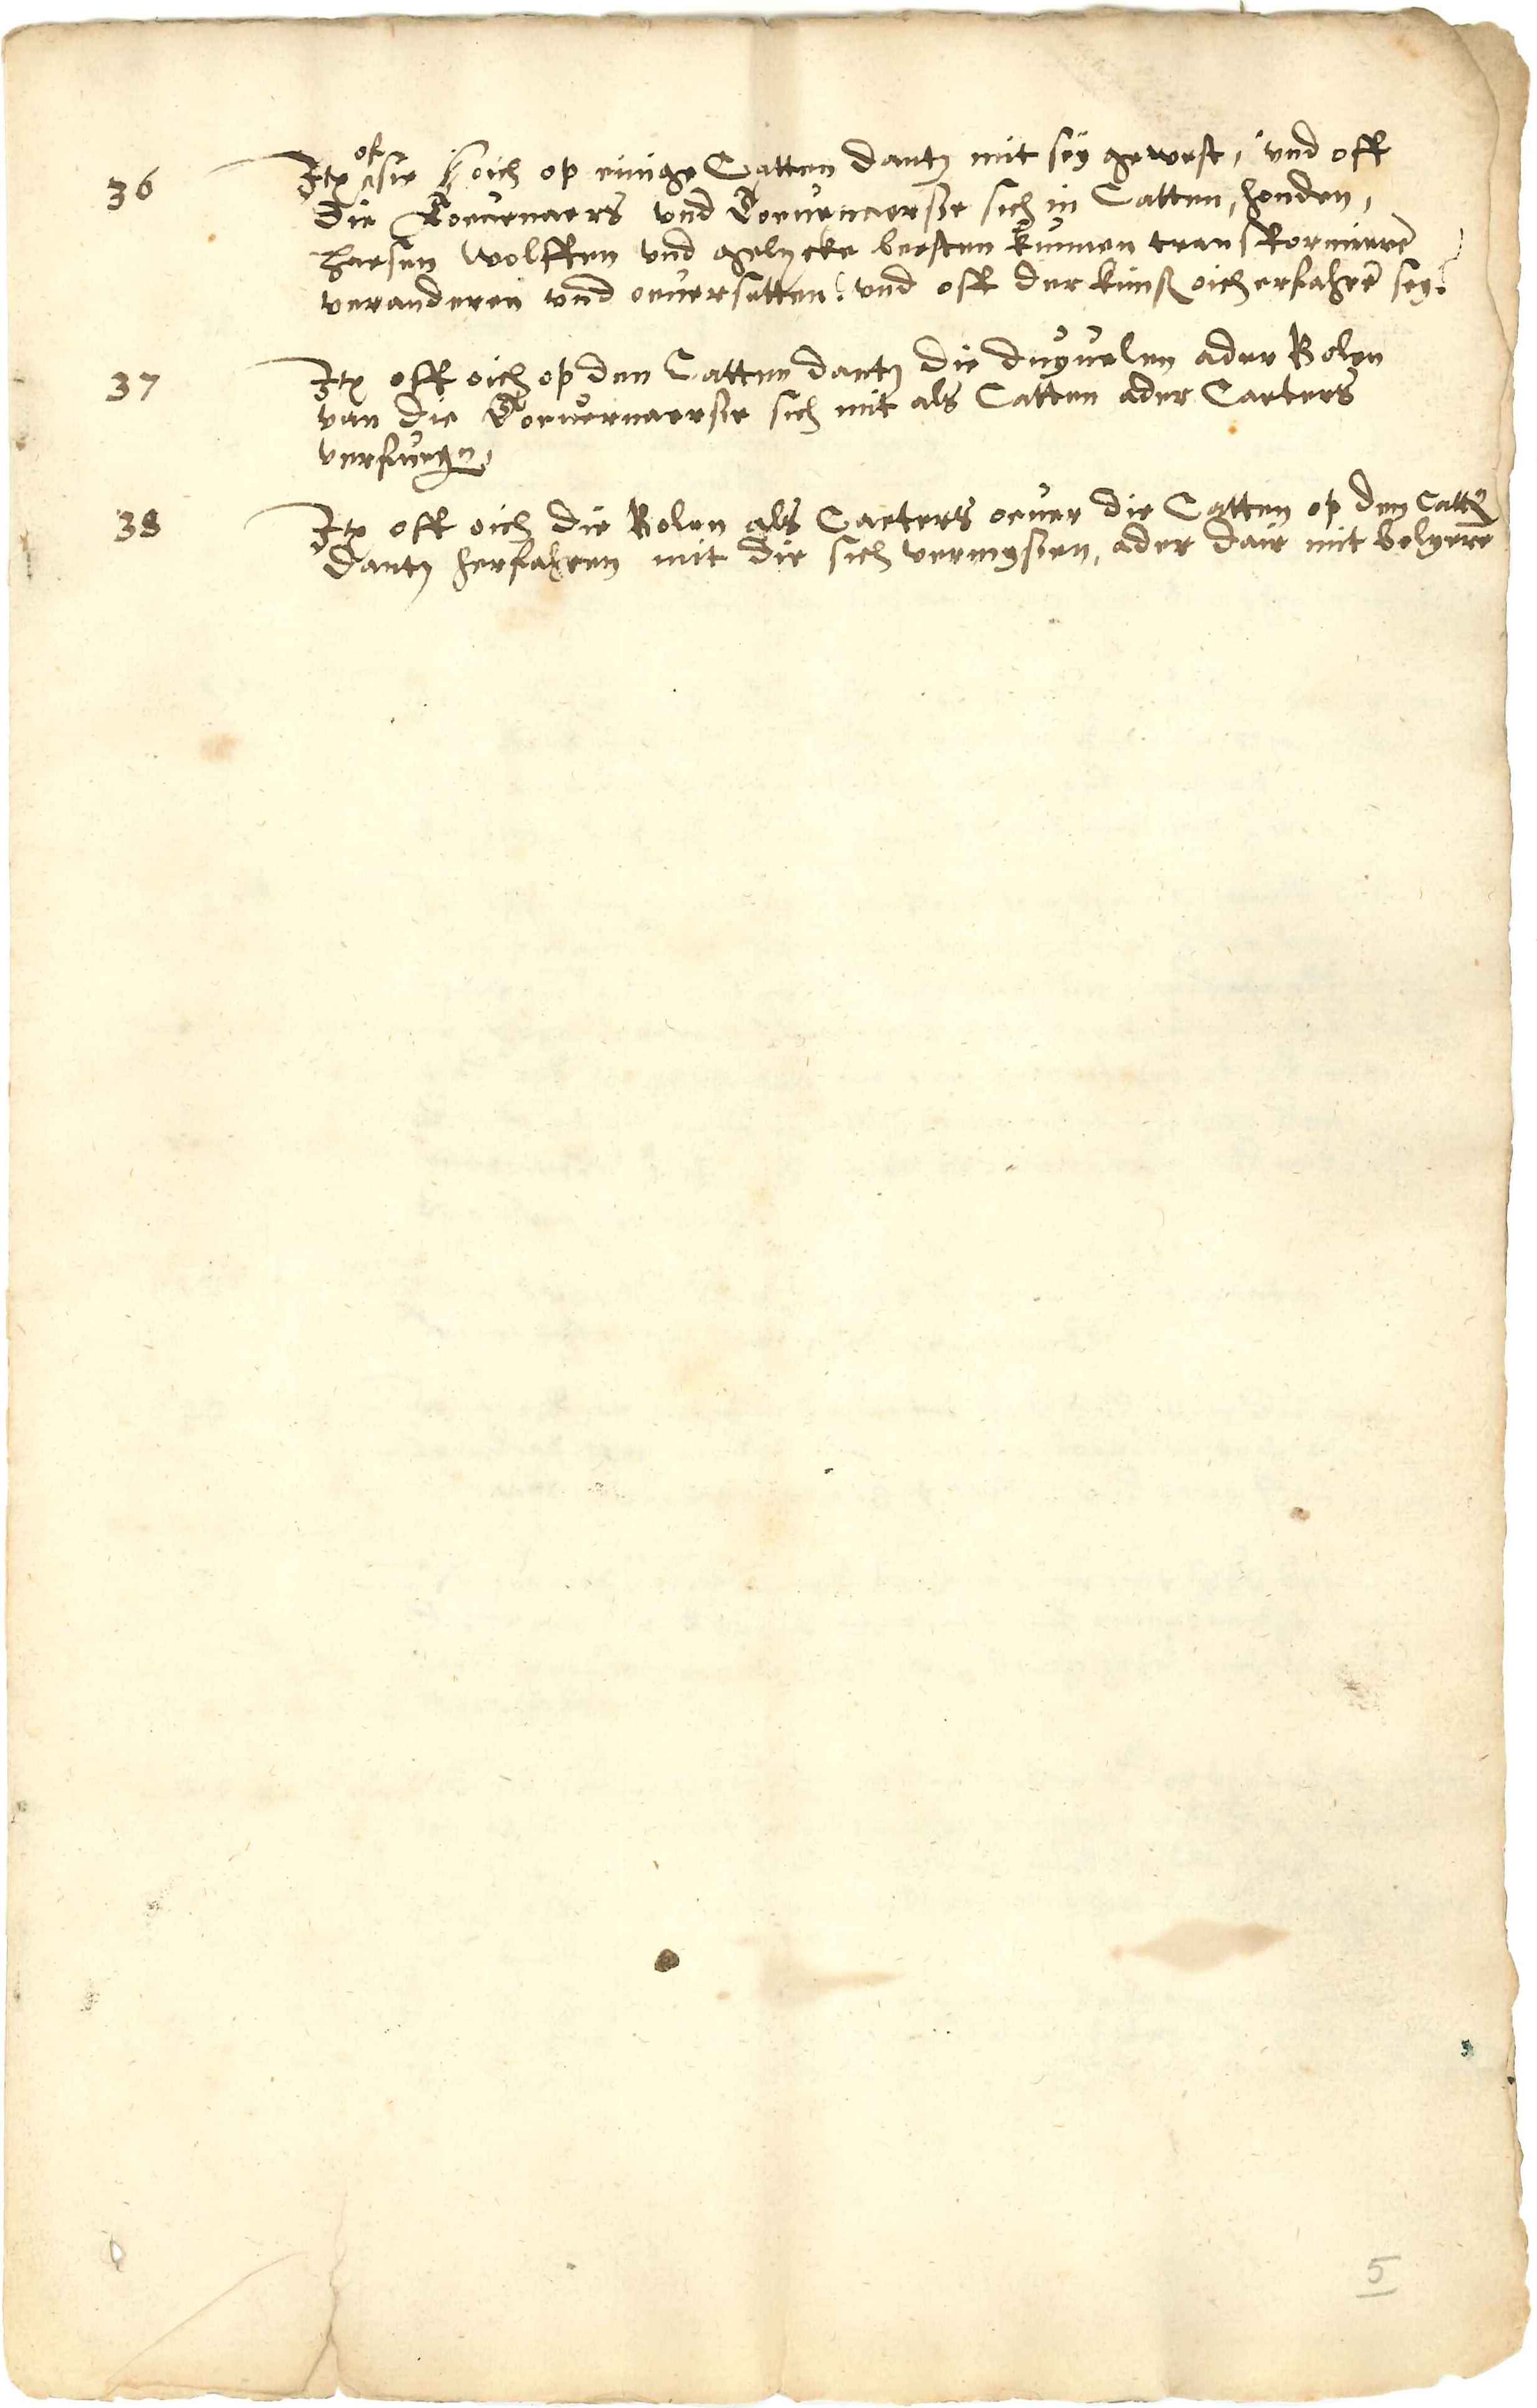 36 Itē of sie oich op einige Catten dantz mit seÿ gewest, und off
die Toeuenaers und Toeuenaersse sich in Catten, honden,
haesen wolffen und gelycke beesten kunnen transformierē
veranderen und oeuersetten? und off der kunst oich erfahrē sey?
37 Itē off oich op den Catten dantz die duÿuelen ader Bolen
van die Toeuernaersse sich mit als Catten ader Caeters
verfuegn,
38 Itē off oich die Bolen als Caeters oeuer die Catten op den Cattē
Dantz herfahren mit die sich vermyssen, ader dair mit bolyerē
5